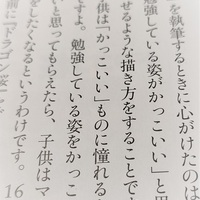 を執筆するときに心がけたのは
勉強している姿がかっこいい」と思
せるような描き方をすることで
供は「かっこいい」ものに憧れる
ですよ。勉強している姿をかっこ
いと思ってもらえたら、子供はマ
をしたくなるというわけです。16
前に『ドラゴン桜